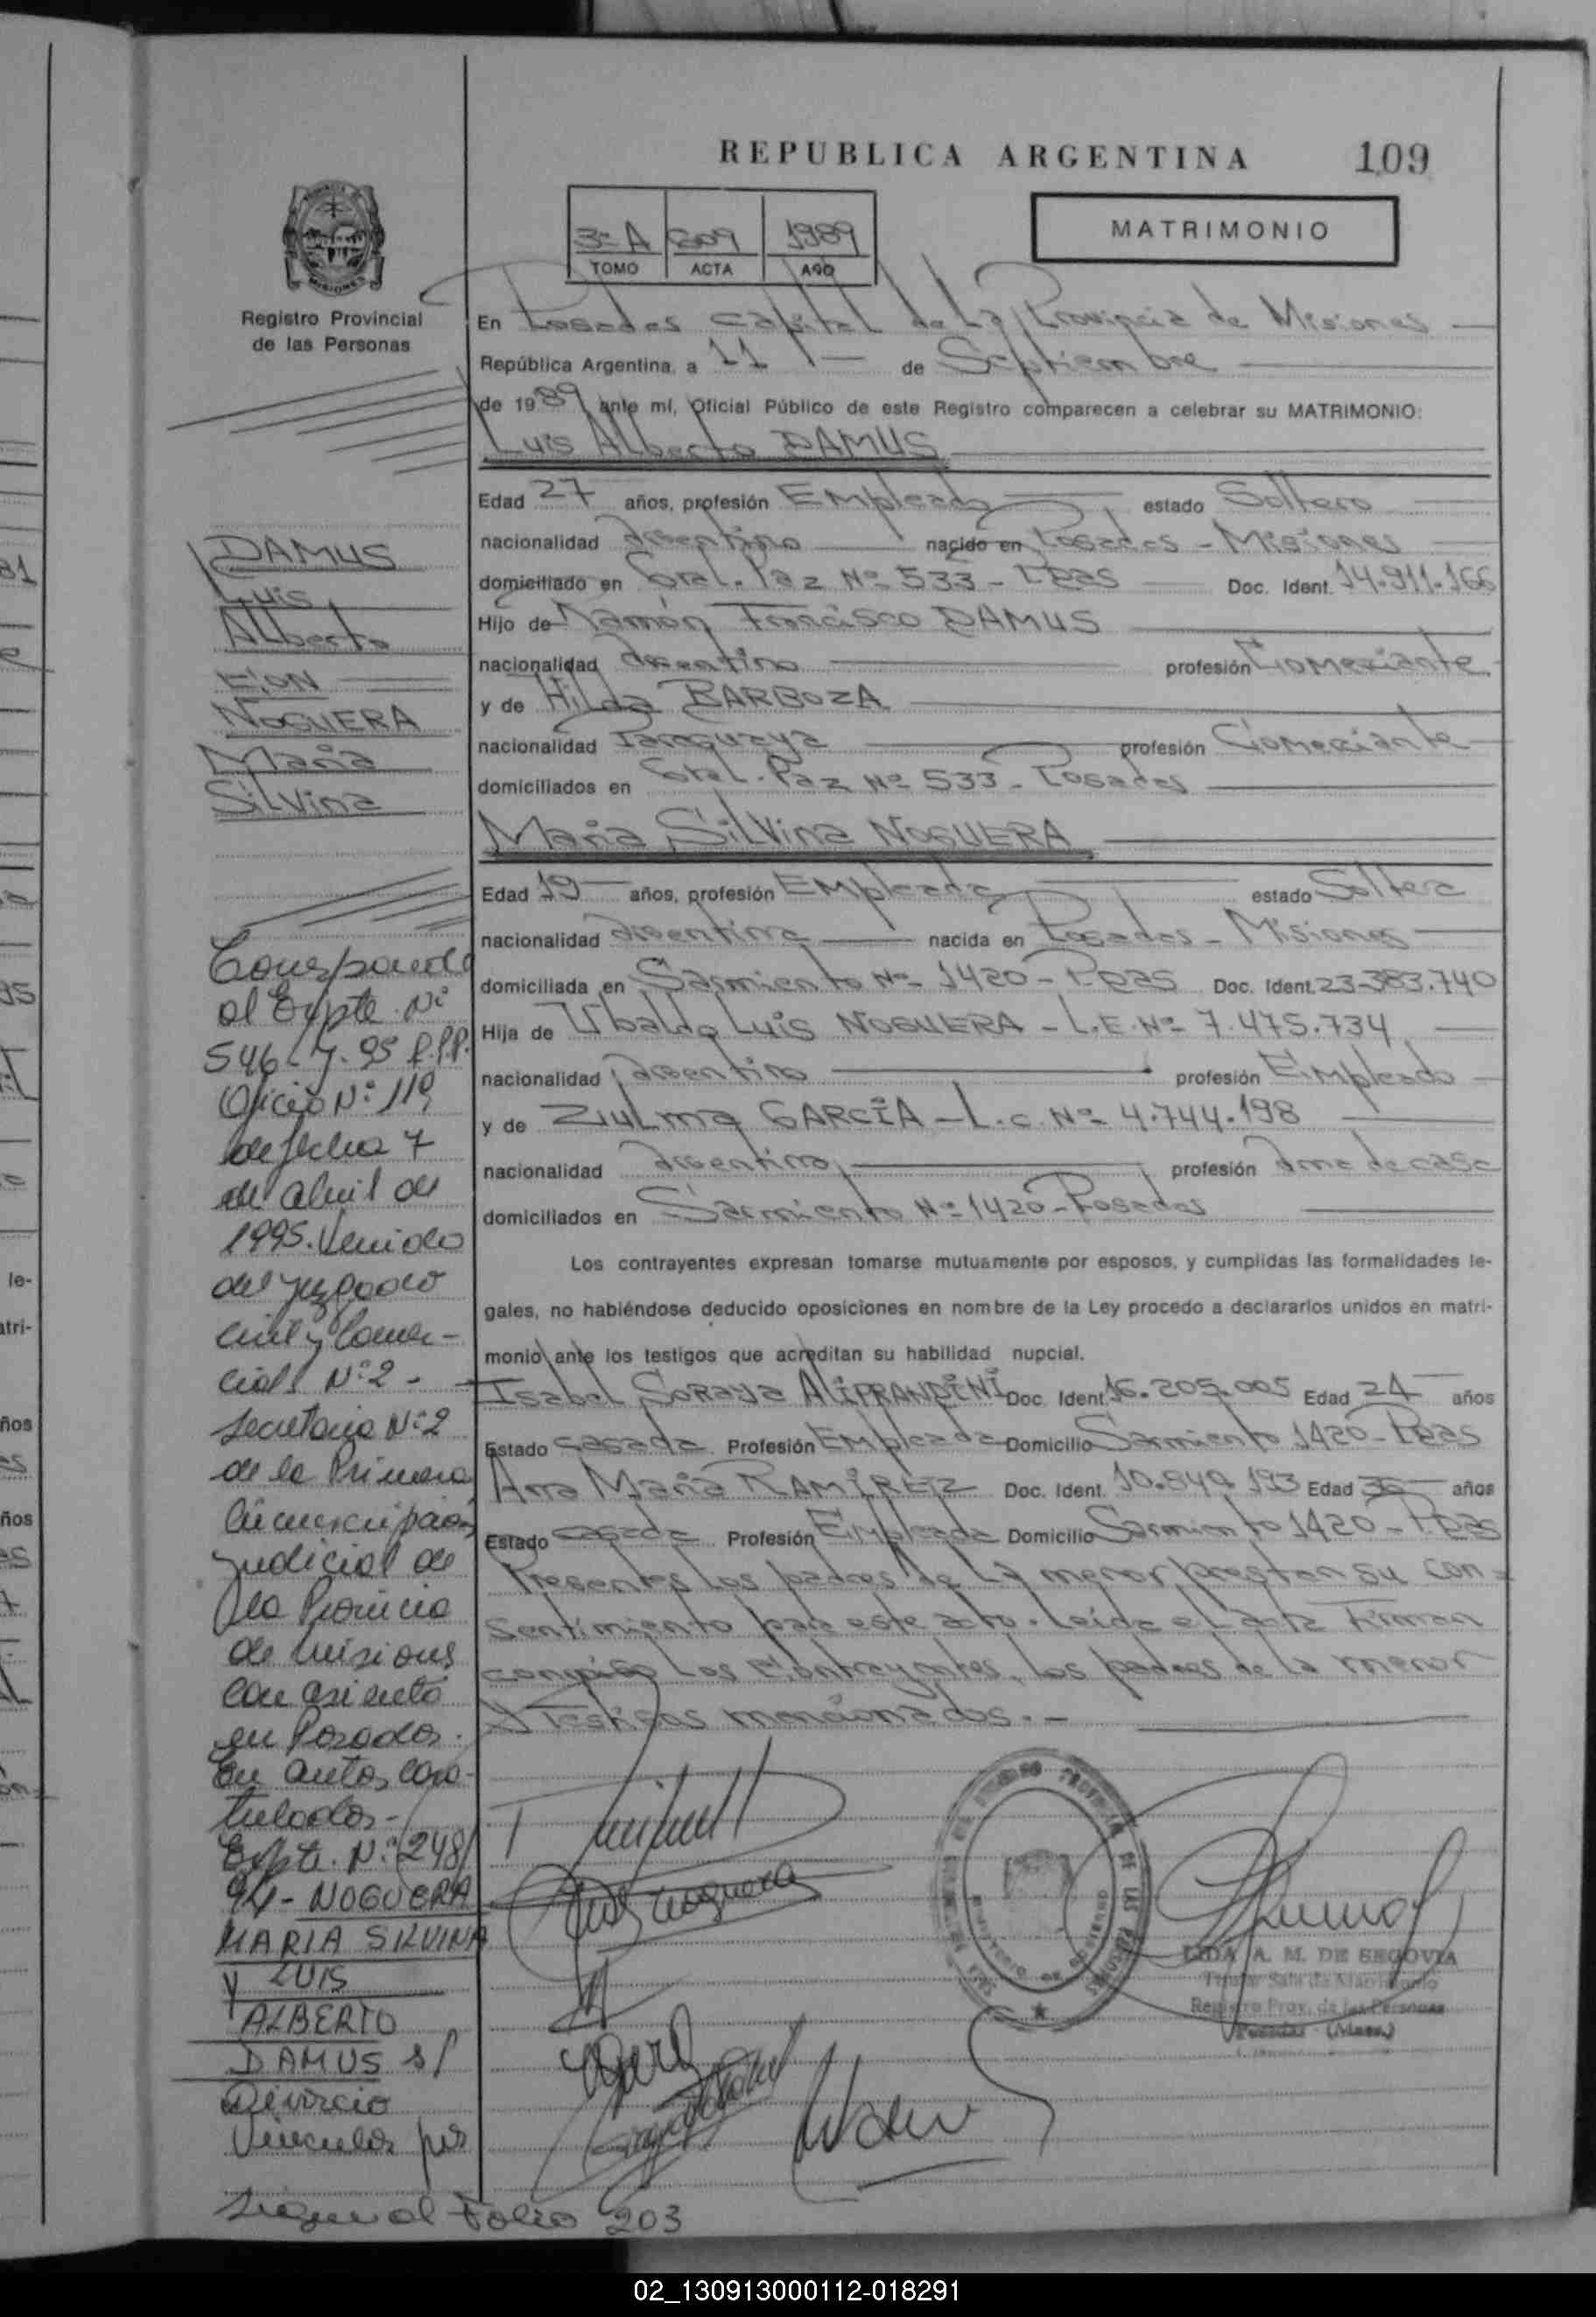 REPUBLICA ARGENTINA 109
MATRIMONIO
3º A 609 1989
TOMO ACTA AÑO
MISIONES
Registro Provincial
de las Personas
En Posadas Capital de La Provincia de Misiones
República Argentina, a 11 de Septiembre
de 1989 ante mí, Oficial Público de este Registro comparecen a celebrar su MATRIMONIO:
Luis Alberto DAMUS
Edad 27 años, profesión Empleado estado Soltero
nacionalidad Argentino nacido en Posadas - Misiones
domiciliado en Gral. Paz Nº 533 - Pdas Doc. Ident. 14.911.166
Hijo de Ramón Francisco DAMUS
nacionalidad Argentino profesión Comerciante
y de Hilda BARBOZA
nacionalidad Paraguaya profesión Comerciante
domiciliados en Gral. Paz Nº 533 - Posadas
María Silvina NOGUERA
Edad 19 años, profesión Empleada estado Soltera
nacionalidad Argentina nacida en Posadas - Misiones
domiciliada en Sarmiento Nº 1420 - Pdas Doc. Ident. 23.383.740
Hija de Ubaldo Luis NOGUERA - L.E. Nº 7.475.734
nacionalidad Argentino profesión Empleado
y de Zulma GARCÍA - L.C. Nº 4.744.198
nacionalidad Argentina profesión Ama de casa
domiciliados en Sarmiento Nº 1420 - Posadas
Los contrayentes expresan tomarse mutuamente por esposos, y cumplidas las formalidades le-
gales, no habiéndose deducido oposiciones en nombre de la Ley procedo a declararlos unidos en matri-
monio ante los testigos que acreditan su habilidad nupcial.
Isabel Soraya ALIPRANDINI Doc. Ident. 16.205.005 Edad 24 años
Estado Casada Profesión Empleada Domicilio Sarmiento 1420 - Pdas
Ana María RAMIREZ Doc. Ident. 10.849.193 Edad 36 años
Estado Casada Profesión Empleada Domicilio Sarmiento 1420 - Pdas
Presentes los padres de la menor prestan su con=
sentimiento para este acto. Leida el acta Firman
conmigo Los Contrayentes, los padres de la menor
y Testigos mencionados. -
DAMUS
Luis
Alberto
CON
NOGUERA
María
Silvina
Corresponde
al Expte. Nº
546-7-95 R.P.P.
Oficio Nº 119
de fecha 7
de abril de
1995. Venido
del Juzgado
Civil y Comer-
cial Nº 2 -
Secretaria Nº 2
de la Primera
Circunscripción
Judicial de
la Provincia
de Misiones
con asiento
en Posadas.
En autos cara-
tulados -
Expte. Nº 248/
94 - NOGUERA
MARIA SILVINA
Y LUIS
ALBERTO
DAMUS s/
Divorcio
Vincular por
Sigue al Folio 203
Luis Noguera
LIDA A. M. DE SEGOVIA
Titular Sala de Matrimonio
Registro Prov. de las Personas
Posadas - (Mnes.)
02_130913000112-018291